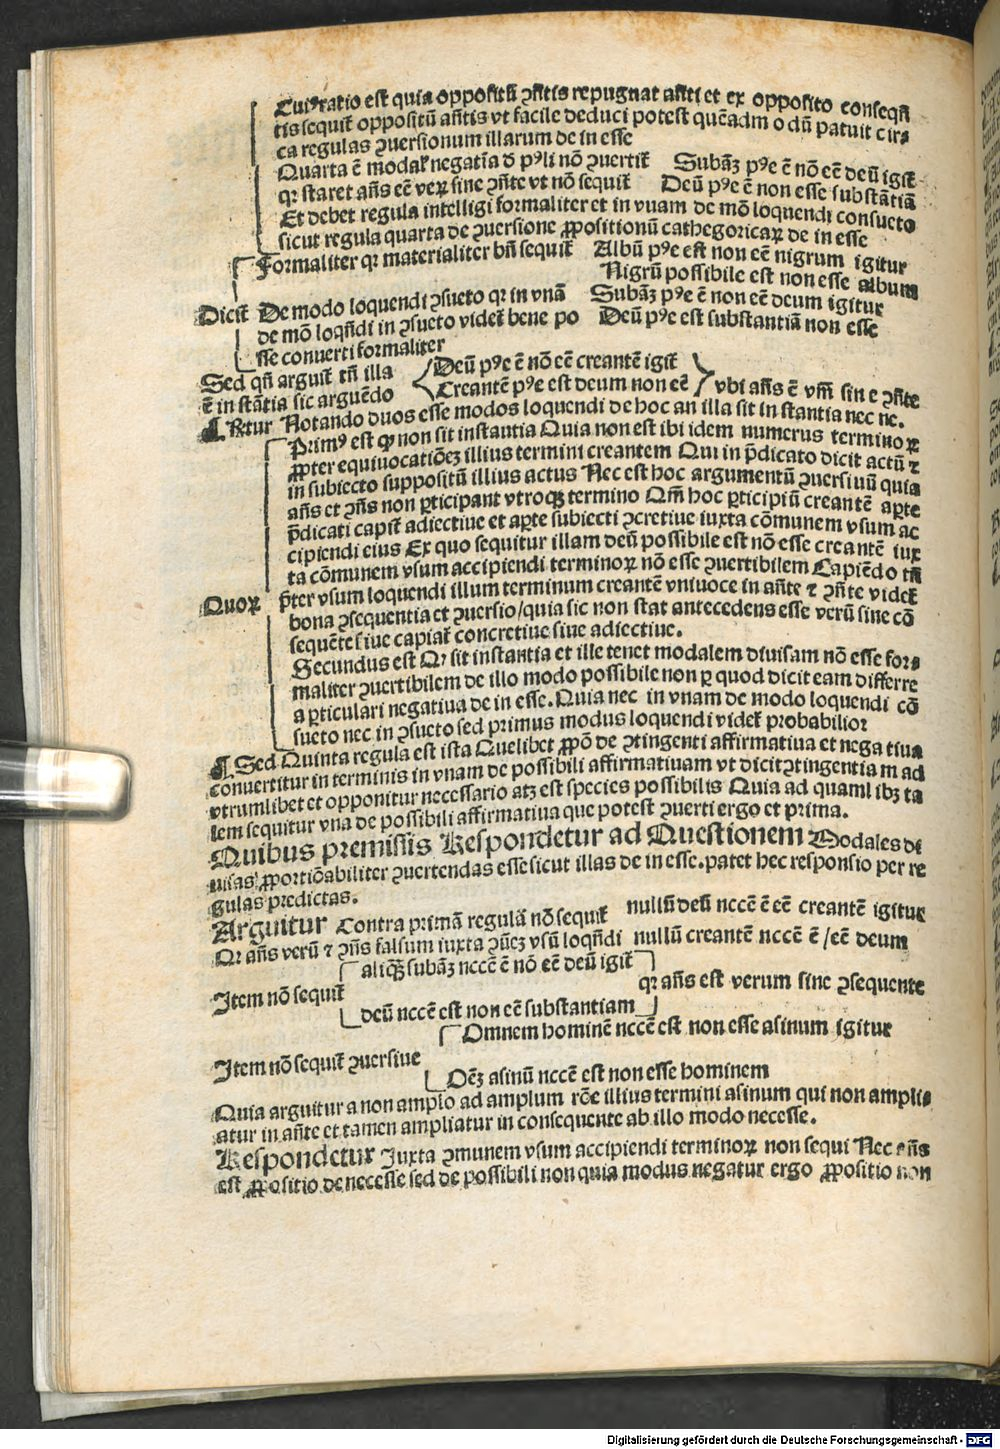 Cuiꝰ ratio est quia oppositū ↄñtis repugnat añti et ex opposito conseqñ
tis sequit̄ oppositū añtis vt facile deduci potest quēadmodū patuit cir⸗
ca regulas ↄuersionum illarum de in esse
Quarta ē modal̄ negatīa d̄ pꝰli nō ↄuertit̄ Subāꝫ pꝰe ē nō eē deū igit̄
qꝛ staret añs eē veꝝ sine ↄñte vt nō sequit̄ Deū pꝰe ē non esse substātiā
Et debet regula intelligi formaliter et in vnam de mō loquendi consueto
sicut regula quarta de ↄuersione ꝓpositionū cathegoricaꝝ de in esse
Formaliter qꝛ materialiter bñ sequit̄ Albū pꝰe est non eē nigrum igitur
Nigrū possibile est non esse album
Dicit̄ De modo loquendi ↄsueto qꝛ in vnā Subāꝫ pꝰe ē non eē deum igitur
de mō loqñdi in ↄsueto videt̄ bene po Deū pꝰe est substantiā non esse
sse conuerti formaliter
Sed qñ arguit̄ tñ illa Deū pꝰe ē nō eē creantē igit̄
ē in stātia sic arguēdo Creantē pꝰe est deum non eē vbi añs ē vm̄ sine ↄñte
¶ Rn̄tur Notando duos esse modos loquendi de hoc an illa sit instantia nec ne.
Primꝰ est ꝙ non sit instantia Quia non est ibi idem numerus terminoꝝ
ꝓpter equiuocatiōeꝫ illius termini creantem Qui in p̄dicato dicit actū ⁊
in subiecto suppositū illius actus Nec est hoc argumentū ↄuersiuū quia
añs et ↄñs non ꝑticipant vtroqꝫ termino Qm̄ hoc ꝑticipiū creantē aꝑte
p̄dicati capit̄ adiectiue et aꝑte subiecti ↄcretiue iuxta cōmunem vsum ac
cipiendi eius Ex quo sequitur illam deū possibile est nō esse creantē iux
ta cōmunem vsum accipiendi terminoꝝ nō esse ↄuertibilem Capiēdo tñ
Quoꝝ p̄ter vsum loquendi illum terminum creantē vniuoce in añte ⁊ ↄñte videt̄
bona ↄsequentia et ↄuersio/quia sic non stat antecedens esse verū sine cō
sequēte siue capiat̄ concretiue siue adiectiue.
Secundus est Qꝛ sit instantia et ille tenet modalem diuisam nō esse for⸗
maliter ↄuertibilem de illo modo possibile non ꝑ quod dicit eam differre
a ꝑticulari negatiua de in esse. Quia nec in vnam de modo loquendi cō
sueto nec in ↄsueto sed primus modus loquendi videt̄ probabilior
¶ Sed Quinta regula est ista Quelibet ꝓpō de ↄtingenti affirmatiua et negatiua
conuertitur in terminis in vnam de possibili affirmatiuam vt dicit ↄtingentiam ad
vtrumlibet et opponitur necessario atqꝫ est species possibilis Quia ad quamlibꝫ ta
lem sequitur vna de possibili affirmatiua que potest ↄuerti ergo et prima.
Quibus premissis Respondetur ad Questionem Modales di
uisas ꝓportiōabiliter ↄuertendas esse sicut illas de in esse. patet hec responsio per re
gulas predictas.
Arguitur Contra primā regulā nō sequit̄ nullū deū nccē ē eē creantē igitur
Qꝛ añs verū ⁊ ↄñs falsum iuxta ↄūeꝫ vsū loqñdi nullū creantē nccē ē /eē deum
aliqꝫ subāꝫ nccē ē nō eē deū igit̄
Item nō sequit̄ qꝛ añs est verum sine ↄsequente
deū nccē est non eē substantiam
Omnem hominē nccē est non esse asinum igitur
Item nō sequit̄ ↄuersiue
Oēꝫ asinū nccē est non esse hominem
Quia arguitur a non amplo ad amplum rōe illius termini asinum qui non amplia⸗
atur in añte et tamen ampliatur in consequente ab illo modo necesse.
Respondetur Juxta ↄmunem vsum accipiendi terminoꝝ non sequi Nec añs
est ꝓpositio de necesse sed de possibili non quia modus negatur ergo ꝓpositio non
Digitalisierung gefördert durch die Deutsche Forschungsgemeinschaft - DFG